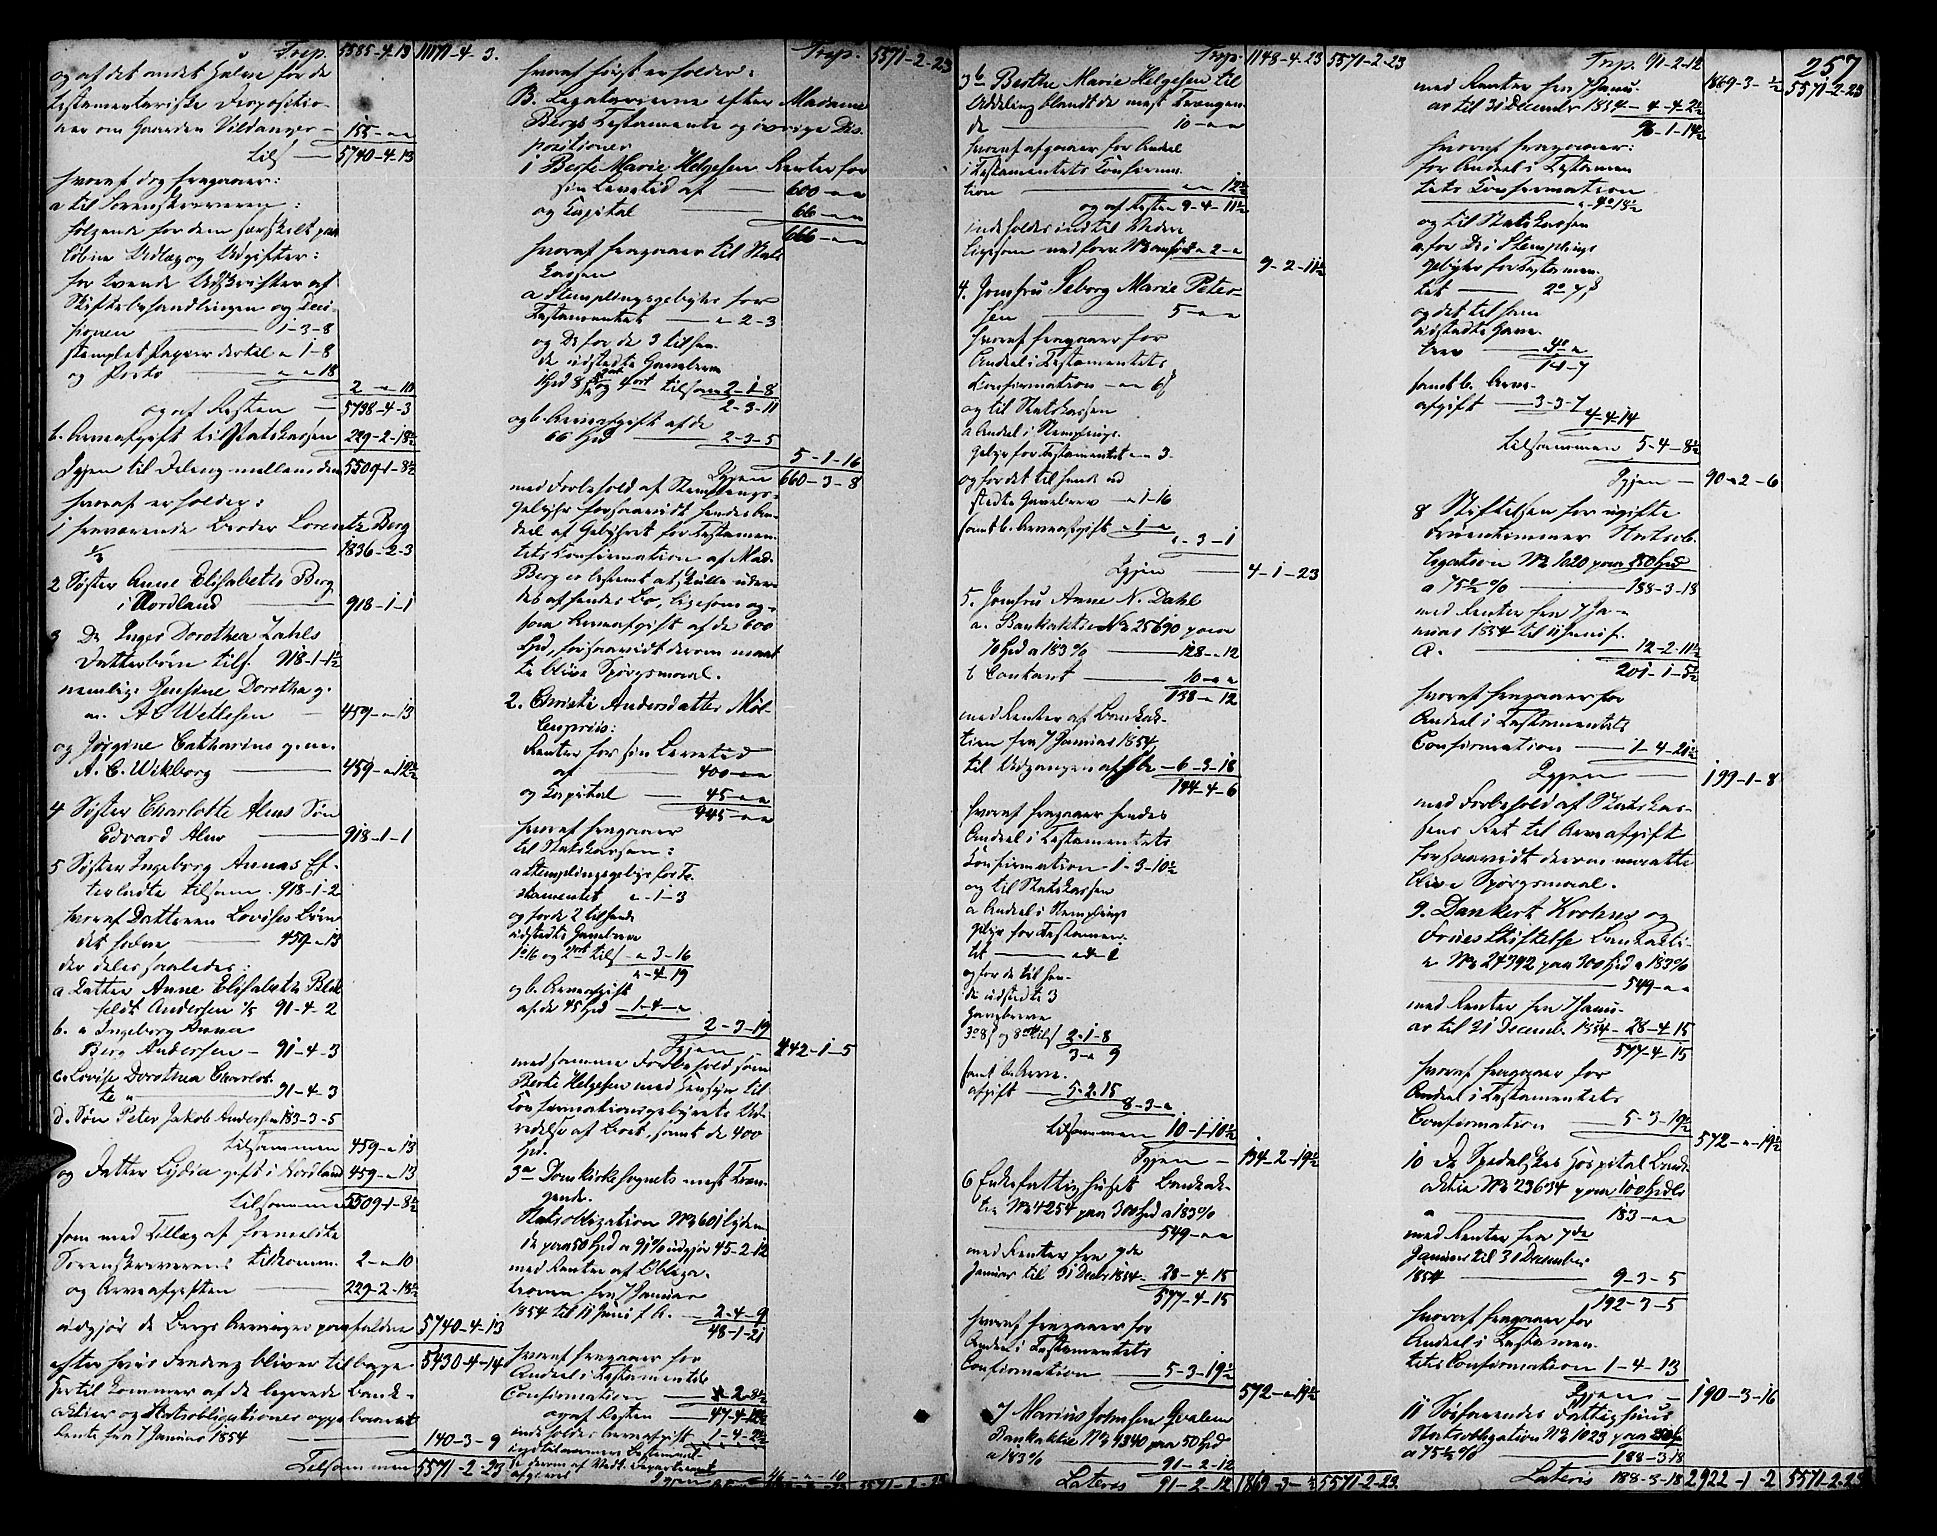 Trsp. 5585-4-13 11171-4-3.
og af det andet Halve for de
testamentariske Dispositio-
ner om Gaarden Vildanger - 155-"-"
tils. 5740-4-13
hvoraf dog fragaaer:
a til Sorenskriveren:
følgende for dem særskelt paa
løbne Udlæg og Udgifter:
for tvende Udskrifter af
Skiftebehandlingen og Deci-
sionen 1-3-8
stemplet Papiir dertil " 1-8
og Porto " " 18
2-"-10
og af Resten 5738-4-3
b. Arveafgift til Statskassen 229-2-18½
Igjen til Deling mellem dem 5509-1-8½
hvoraf erholder:
1 fraværende Broder Lorentz Berg
⅓ 1836-2-3
2 Søster Anne Elisabeth Berg
i Nordland 918-1-1
3 Do Inger Dorothea Zahls
Datterbørn tils. 918-1-1½
nemlig: Jensine Dorothea g.
m. A C Wettesen 459-"-13
og Jørgine Catharine g. m.
A. C. Wikborg 459-"-12½
4 Søster Charlotte Alms Søn
Edvard Alm 918-1-1
5 Søster Ingeborg Annas Ef-
terladte tilsam. 918-1-2
hvoraf Datteren Lovises Børn
det halve 459-"-13
der deles saaledes:
a Datter Anne Elisabeth Blek
feldt Andersen ⅕ 91-4-2
b. " Ingeborg Anna
Berg Andersen - 91-4-3
c. Lovise Dorothea Charlot-
te " 91-4-3
d. Søn Peter Jakob Andersen 183-3-5
Tilsammen 459-"-13
og Datter Lydia gift i Nordland 459-"-13
Tilsammen 5509-1-8½
som med Tillæg af formeldte
Sorenskriverens Tilkomm. 2-"-10
og Arveafgiften 229-2-18½
udgjør de Bergs Arvinger paafaldne 5740-4-13
efter hvis Fradrag bliver tilbage 5430-4-14
hertil kommer af de legerede Bank-
aktier og Statsobligationer oppebaaret
Rente fra 7 Januar 1854 140-3-9
Tilsammen 5571-2-23
Trsp. 5571-2-23
hvoraf først erholder:
B. Legatarierne efter Madame
Bergs Testamente og øvrige Dis-
positioner
1 Berte Marie Helgesen Renter for
sin Levetid af 600-"-"
og Capital 66-"-"
666-"-"
hvoraf fragaaer til Stats
kassen
a Stemplingsgebyhr for
Testamentet " 2-3
og Do for de 3 tilhen-
de udstedte Gavebreve
og 4 ort tilsam 2-1-8
2-3-11
og b. Arveafgift af de
66 Spd 2-3-5
5-1-16
Igjen 660-3-8
med Forbehold af Stemplings-
gebyhr forsaavidt hendes An-
deel af Gebyhret for Testamen-
tets Confirmation af Mad.
Berg er bestemt at skulle udre-
des af hendes Bo, ligesom og-
saa Arveafgift af de 600
Spd, forsaavidt derom maat
te blive Spørgsmaal.
2. Christi Andersdatter Møl-
lenpriis:
Renter for sin Levetid
af 400-"-"
og Capital 45-"-"
445-"-"
hvoraf fragaaer
til Statskassen:
a Stemplingsgebyr for Te-
stamentet "-1-3
og for de 2 tilhende
udstedte Gavebreve
tils. " 3-16
"-4-19
og b. Arveafgift
af de 45 Spd 1-4-"
2-3-19
Igjen 442-1-5
med samme Forbehold som
Berte Helgesen med Hensyn til
Confirmationsgebyrets Ud-
redelse af Boet, samt de 400
Spd.
3a Domkirkesognets mest Træn-
gende.
Statsobligation No 601 lyden-
de paa 50 Spd a 91% udgjør 45-2-12
med Renter af Obliga-
tionen fra 7 Januar
1854 til 11 Juni f. A. 2-4-9
48-1-21
hvoraf fragaaer for
Andeel i Testamentets
Confirmation " 2-8½
og af Resten 47-4-12½
indholdes Arveafgift 1-4-2½
Trsp. 1148-4-23 5571-2-23
3b Berthe Marie Helgesen til
Uddeling blandt de mest Trængen-
de 10-"-"
hvoraf afgaaer for Andeel
i Testamentets Confirma-
tion " " 12½
og af Resten 9-4-11½
indholdes indtil Videre
ligesom ved forr. " 2-"
9-2-11½
4. Jomfru Seborg Marie Peter-
sen 5-"-"
hvoraf fragaaer for
Andeel i Testamentets
Confirmation - " 6½
og til Statskassen
a Andeel i Stemplings-
gebyr for Testamentet " " 3.
og for det til hende ud
stedte Gavebrev " 1-16
samt b. Arveafgift " 1-"
"-3-1
Igjen 4-1-23
5. Jomfru Anne N. Dahl
a. Bankaktie No 25690 paa
70 Spd a 183% 128-"-12
b Contant 10-"-"
138-"-12
med Renter af Bankak-
tien fra 7 Januar 1854
til Udgangen af s. A. - 6-3-18
144-4-6
hvoraf fragaaer hendes
Andeel i Testamentets
Confirmation 1-3-10½
og til Statskassen
a Andeel i Stemplings
gebyr for Testamen-
tet
og for de til hen-
de udstedte 3
Gavebreve
tils. 2-1-8
3-"-9
samt b. Arve-
afgift 5-2-15
8-3-"
Tilsammen 10-1-10½
Igjen 134-2-19½
6 Enkefattighuset Bankak-
tie No 4254 paa 300 Spd a 183%
549-"-"
med Renter fra 7de
Januar til 31 Decbr 1854. 28-4-15
577-4-15
hvoraf fragaaer for
Andeel i Testamentets
Confirmation 5-3-19½
572-"-19½
7 Marius Johnsen Qvalem
Bankaktie No 9340 paa 50 Spd
a 183% 91-2-12
Lateris 91-2-12 1869-3-½ 5571-2-23.
257
Trsp. 91-2-12 1869-3-½ 5571-2-23
med Renter fra 7 Janu-
ar til 31 December 1854 - 4-4-2½
96-1-14½
hvoraf fragaaer:
for Andeel i Testamen
tets Confirmation
" 4o 18½
og til Statskassen
a. for Do i Stemplings
gebyhr for Testamen-
tet
og det til ham
udstedte Gave-
brev
1-1-7
samt b. Arve-
afgift 3-3-7
4-4-14
Tilsammen 5-4-8½
Igjen 90-2-6
8 Stiftelsen for ugifte
Fruentimmer Statsob-
ligation No 1020 paa 250 Spd
a 75½% 188-3-18
med Renter fra 7 Ja-
nuar 1854 til 11 Juni f.
A. 12-2-11½
201-1-5½
hvoraf fragaaer for
Andeel i Testamentets
Confirmation 1-4-21½
Igjen 199-1-8
med Forbehold af Statskas-
sens Ret til Arveafgift
forsaavidt derom maatte
blive Spørgsmaal.
9. Dankert Krohns og
Frues Stiftelse Bankakti-
e No 24392 paa 300 Spd a 183%
549-"-"
med Renter fra 7 Janu-
ar til 31 Decemb. 1854 - 28-4-15
577-4-15
hvoraf fragaaer for
Andeel i Testamentets
Confirmation 5-3-19½
572-"-19½
10 De Spedalskes Hospital Bank-
aktie No 23654 paa 100 Spd
183-"-"
med Renter fra 7de
Januar til 31 December
1854 9-3-5
192-3-5
hvoraf fragaaer for
Andeel i Testamen-
tets Confirmation 1-4-13
Igjen 190-3-16
11 Søfarendes Fattighuus
Statsobligation No 1023 paa 250
a 75½% 188-3-18
Lateris 188-3-18 2922-1-2 5571-2-23